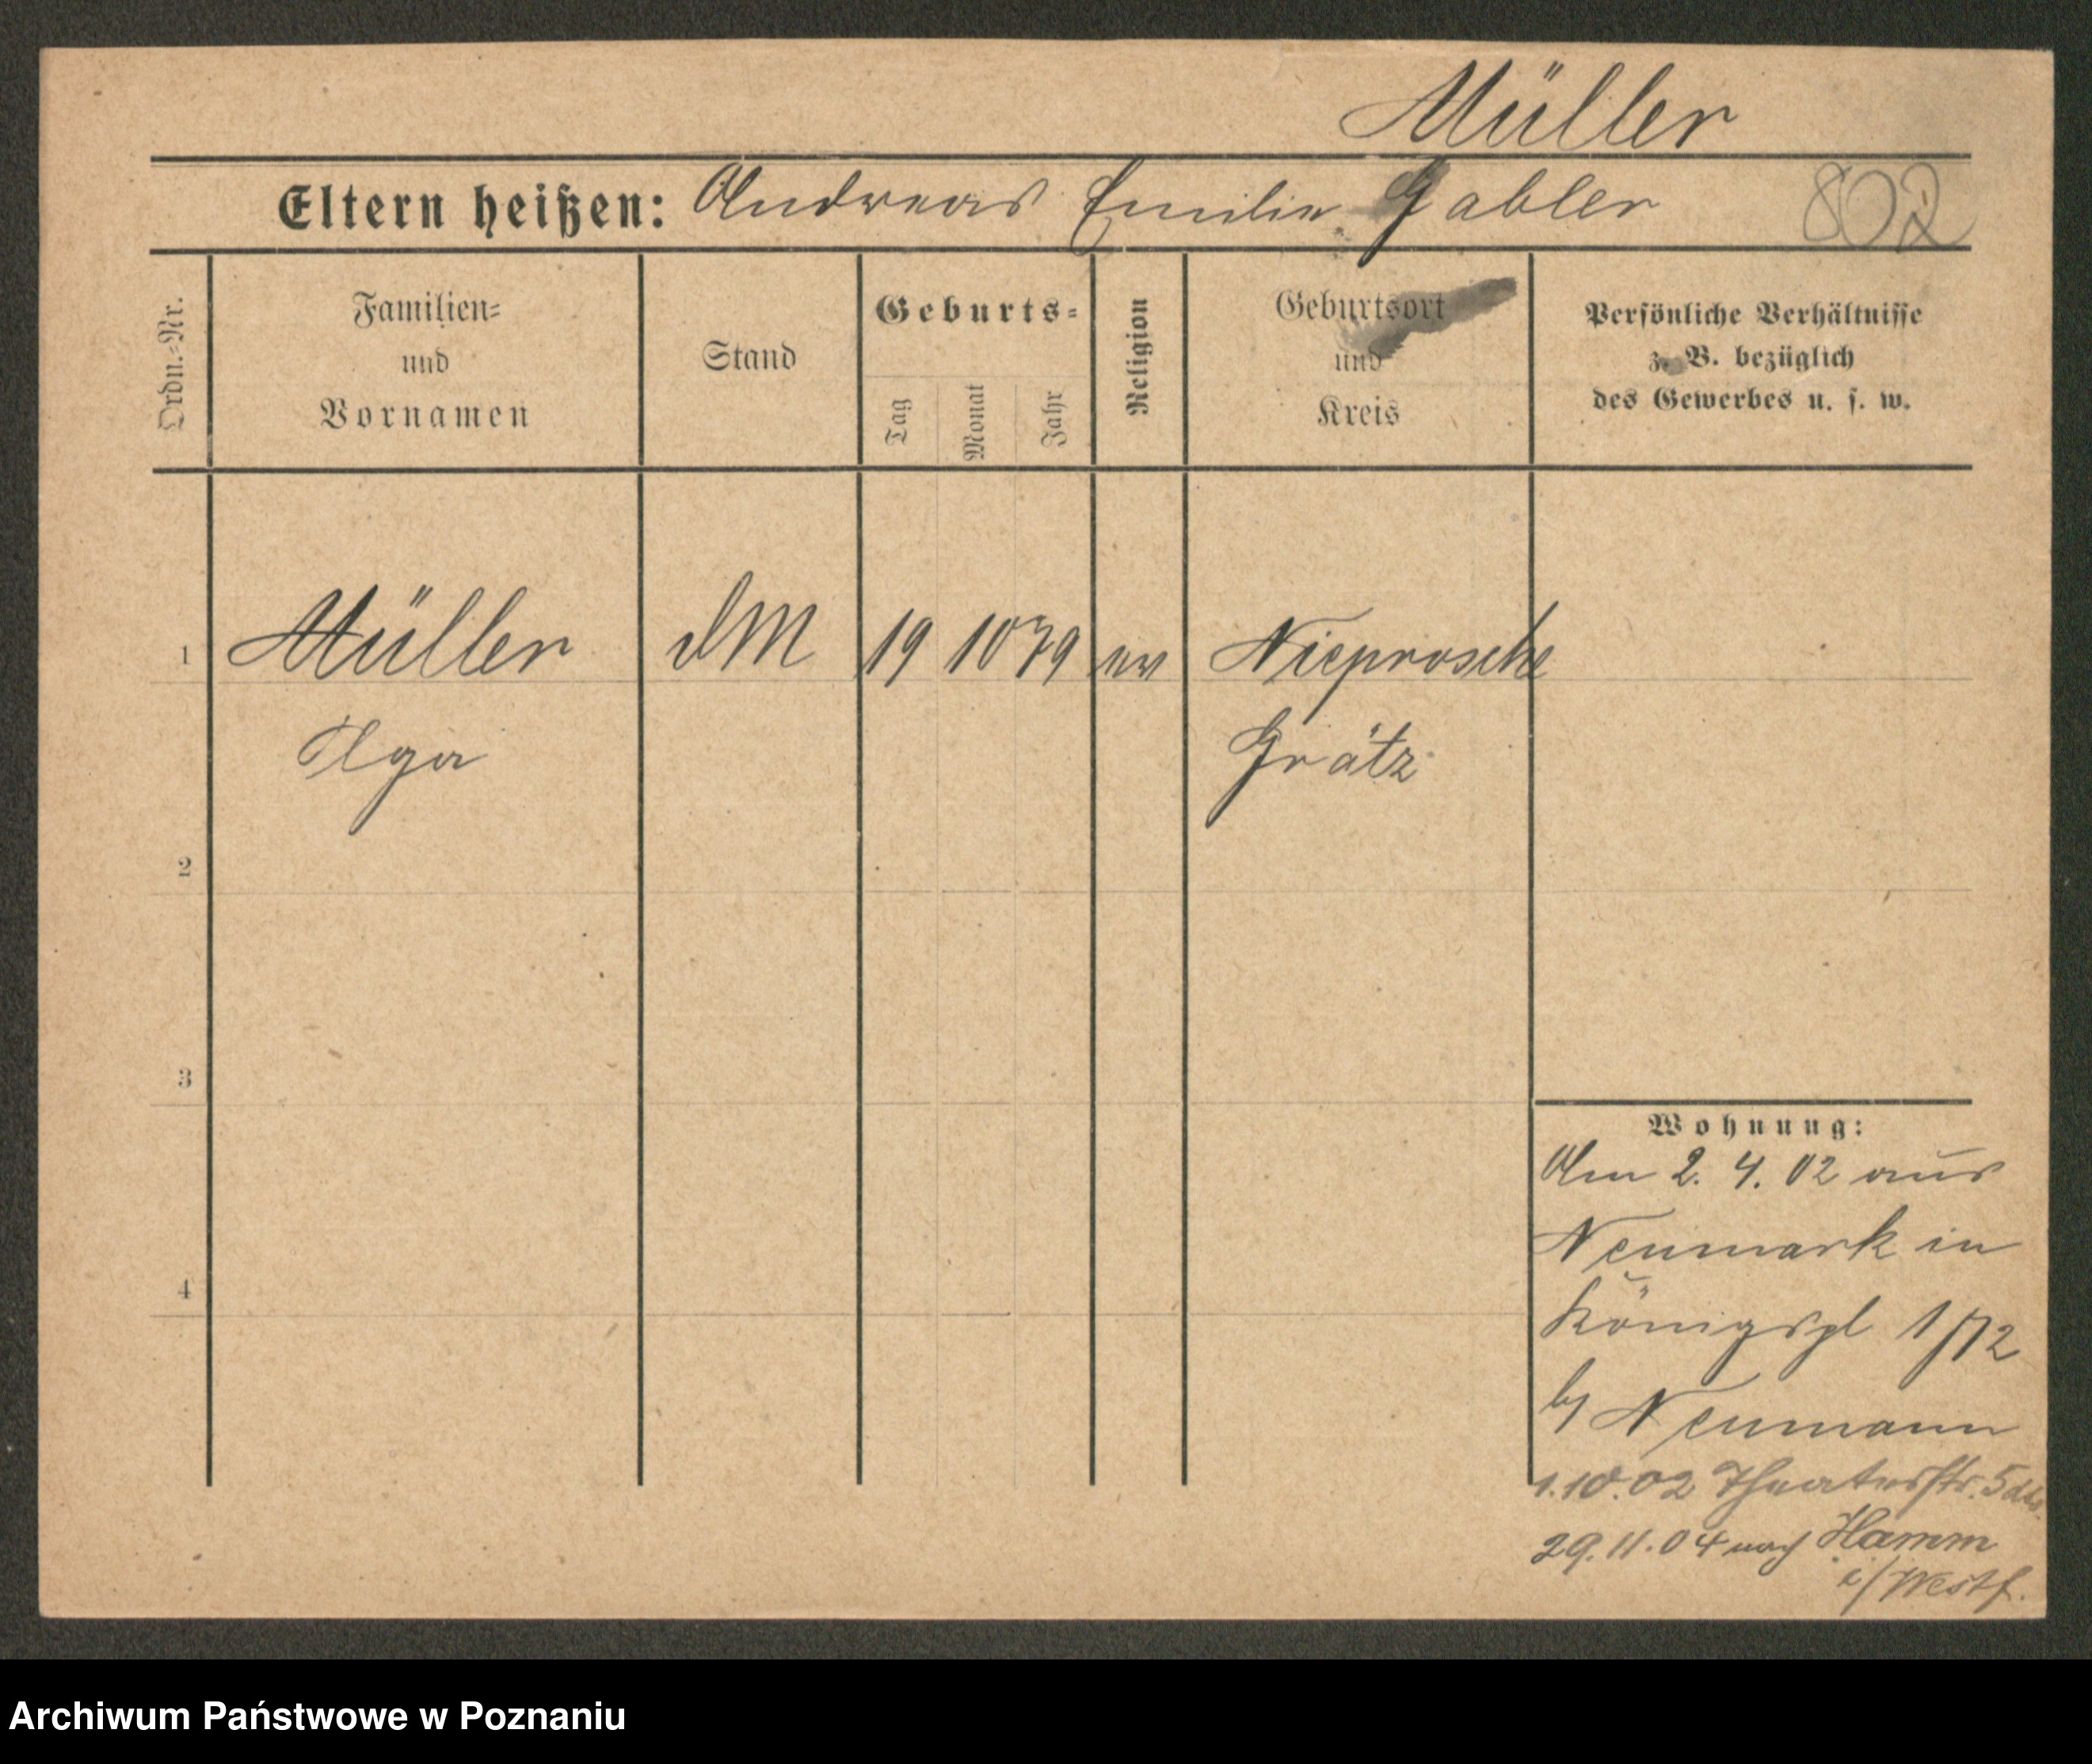 Müller
Eltern heißen: Andreas Emilie Gabler 802
Ordn.=Nr.
Familien=
und
Vornamen
Stand
Geburts=
Tag
Monat
Jahr
Religion
Geburtsort
und
Kreis
Persönliche Verhältnisse
z. B. bezüglich
des Gewerbes u. s. w.
1 Müller 19 10 79 ev Nieprosche
Olga Grätz
2
3
4
Wohnung:
Am 2. 4. 02 aus
Neumark in
Königspl 1/72
b/ Neumann
1.10.02 Theaterstr. 5
29.11.04 nach Hamm
i/Westf.
Archiwum Państwowe w Poznaniu